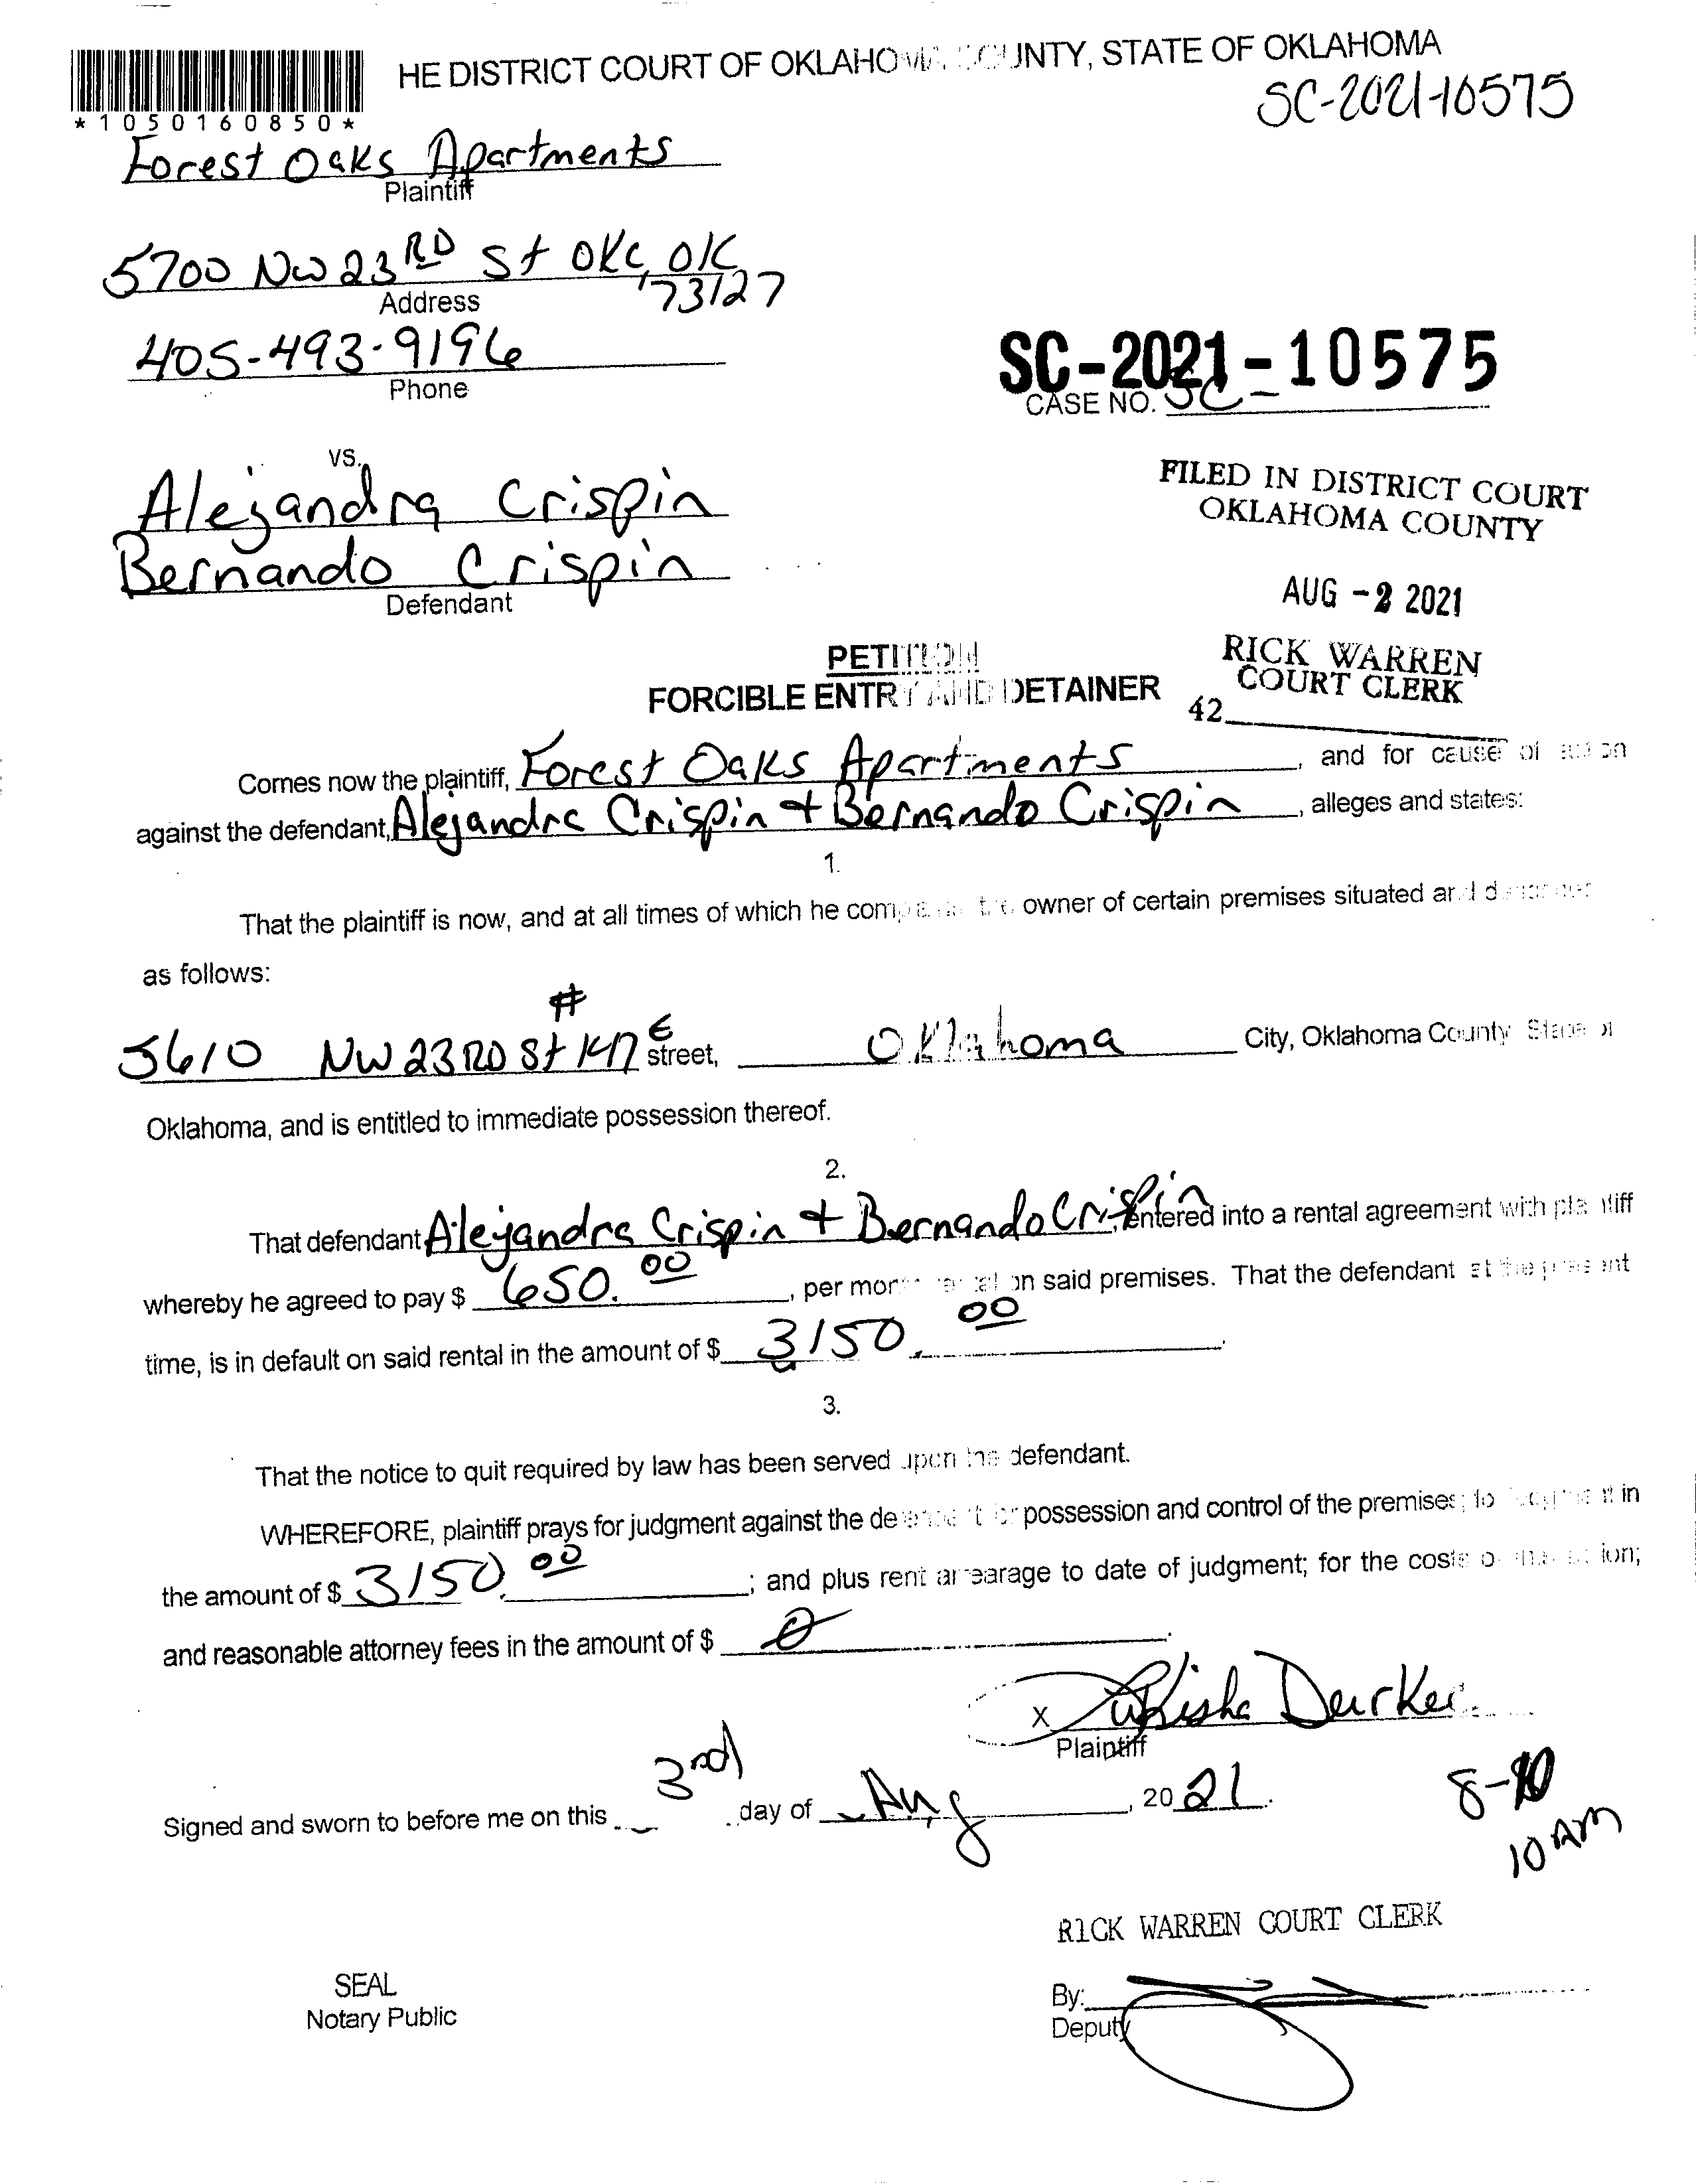 HE DISTRICT COURT OF OKLAHOMA COUNTY, STATE OF OKLAHOMA
SC-2021-10575
*1050160850*
Forest Oaks Apartments
Plaintiff
5700 NW 23RD St OKC, OK
73127
Address
405-493-9196
Phone
SC-2021-10575
CASE NO. SC-
vs.
Alejandra Crispin
Bernando Crispin
Defendant
FILED IN DISTRICT COURT
OKLAHOMA COUNTY
AUG -2 2021
RICK WARREN
COURT CLERK
42
PETITION
FORCIBLE ENTRY AND DETAINER
Comes now the plaintiff, Forest Oaks Apartments, and for cause of action
against the defendant, Alejandra Crispin + Bernando Crispin, alleges and states:
1.
That the plaintiff is now, and at all times of which he complains the owner of certain premises situated and
as follows:
#
5610 NW 23RD St street, Oklahoma City, Oklahoma County State of
Oklahoma, and is entitled to immediate possession thereof.
2.
That defendant Alejandra Crispin + Bernando Crispin, entered into a rental agreement with plaintiff
whereby he agreed to pay $ 650.00, per month rental on said premises. That the defendant at the present
time, is in default on said rental in the amount of $ 3150.00.
3.
That the notice to quit required by law has been served upon the defendant.
WHEREFORE, plaintiff prays for judgment against the defendant for possession and control of the premises; for judgment in
the amount of $ 3150.00; and plus rent arrearage to date of judgment; for the costs of the action;
and reasonable attorney fees in the amount of $ 0.
X
Plaintiff
Signed and sworn to before me on this 3nd day of Aug, 2021.
10 AM
RICK WARREN COURT CLERK
SEAL
Notary Public
By:
Deputy